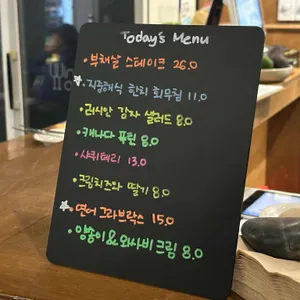 Today's Menu
부채살 스테이크 26.0
직접해식 한치 회무침 11.0
러시안 감자 샐러드 8.0
캐나다 푸틴 8.0
샤퀴테리 13.0
크림치즈와 딸기 8.0
연어 그라브락스 15.0
양송이 & 와사비 크림 8.0